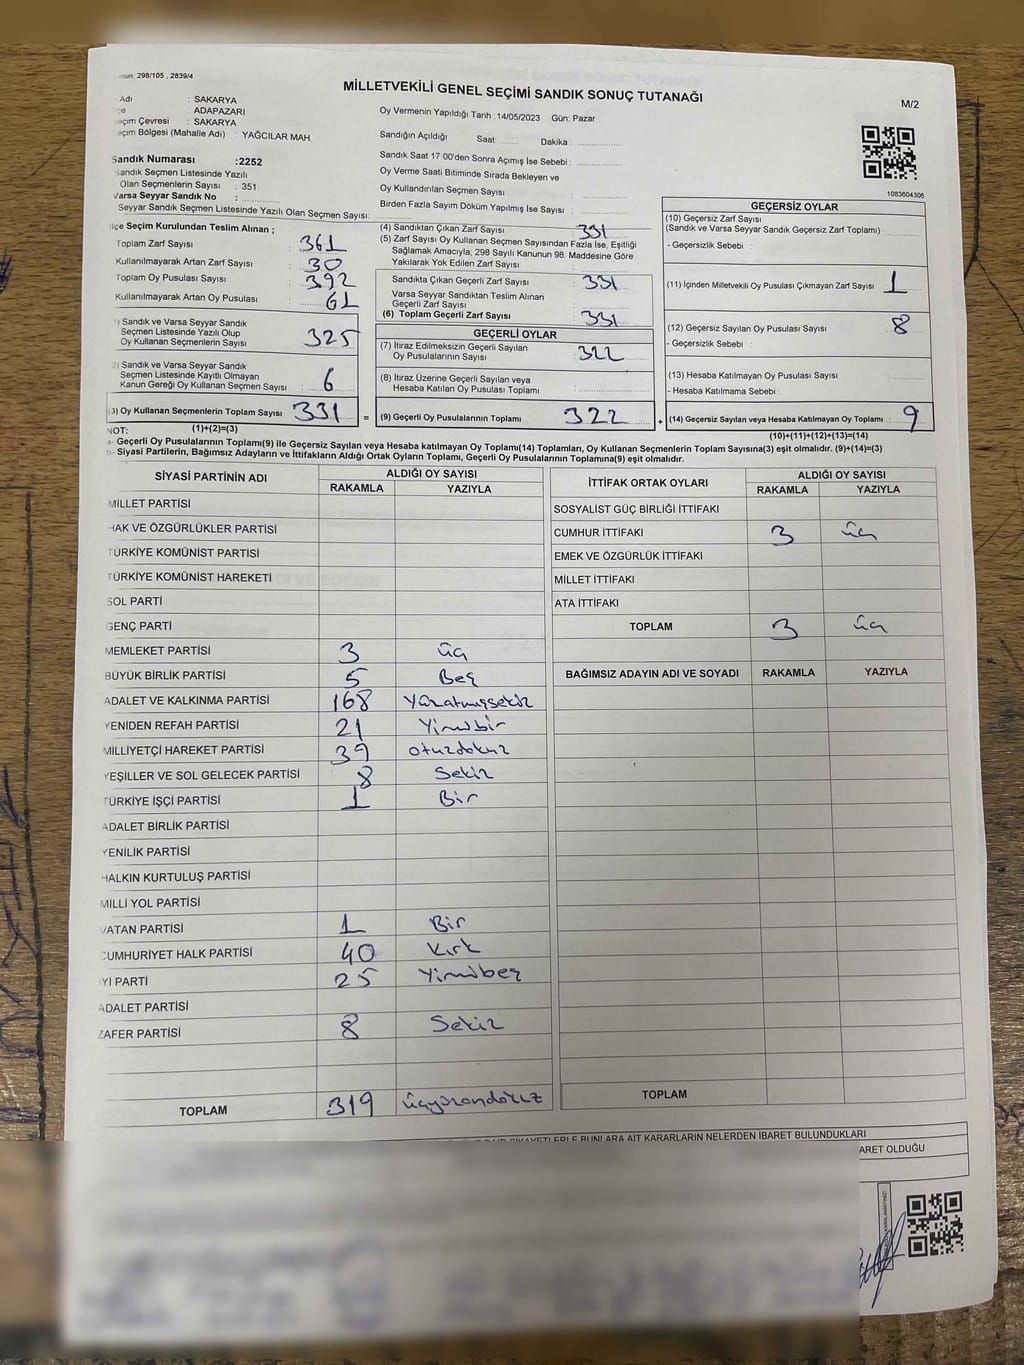 298/105 , 2839/4
MİLLETVEKİLİ GENEL SEÇİMİ SANDIK SONUÇ TUTANAĞI
M/2
Adı : SAKARYA
: ADAPAZARI
Seçim Çevresi : SAKARYA
Seçim Bölgesi (Mahalle Adı) : YAĞCILAR MAH.
Oy Vermenin Yapıldığı Tarih : 14/05/2023 Gün: Pazar
Sandığın Açıldığı Saat: Dakika :
Sandık Numarası :2252
Sandık Saat 17:00'den Sonra Açımış İse Sebebi :
Sandık Seçmen Listesinde Yazılı
Olan Seçmenlerin Sayısı : 351
Oy Verme Saati Bitiminde Sırada Bekleyen ve
Oy Kullandırılan Seçmen Sayısı
Varsa Seyyar Sandık No :
Birden Fazla Sayım Döküm Yapılmış İse Sayısı :
Seyyar Sandık Seçmen Listesinde Yazılı Olan Seçmen Sayısı:
1083604306
İlçe Seçim Kurulundan Teslim Alınan ;
Toplam Zarf Sayısı : 361
Kullanılmayarak Artan Zarf Sayısı : 30
Toplam Oy Pusulası Sayısı : 392
Kullanılmayarak Artan Oy Pusulası : 61
1) Sandık ve Varsa Seyyar Sandık
Seçmen Listesinde Yazılı Olup
Oy Kullanan Seçmenlerin Sayısı : 325
2) Sandık ve Varsa Seyyar Sandık
Seçmen Listesinde Kayıtlı Olmayan
Kanun Gereği Oy Kullanan Seçmen Sayısı : 6
(3) Oy Kullanan Seçmenlerin Toplam Sayısı 331
(4) Sandıktan Çıkan Zarf Sayısı : 331
(5) Zarf Sayısı Oy Kullanan Seçmen Sayısından Fazla İse, Eşitliği
Sağlamak Amacıyla; 298 Sayılı Kanunun 98. Maddesine Göre
Yakılarak Yok Edilen Zarf Sayısı :
Sandıkta Çıkan Geçerli Zarf Sayısı : 331
Varsa Seyyar Sandıktan Teslim Alınan
Geçerli Zarf Sayısı :
(6) Toplam Geçerli Zarf Sayısı : 331
GEÇERLİ OYLAR
(7) İtiraz Edilmeksizin Geçerli Sayılan
Oy Pusulalarının Sayısı : 322
(8) İtiraz Üzerine Geçerli Sayılan veya
Hesaba Katılan Oy Pusulası Toplamı :
= (9) Geçerli Oy Pusulalarının Toplamı : 322
GEÇERSİZ OYLAR
(10) Geçersiz Zarf Sayısı
(Sandık ve Varsa Seyyar Sandık Geçersiz Zarf Toplamı) :
- Geçersizlik Sebebi :
(11) İçinden Milletvekili Oy Pusulası Çıkmayan Zarf Sayısı : 1
(12) Geçersiz Sayılan Oy Pusulası Sayısı : 8
- Geçersizlik Sebebi :
(13) Hesaba Katılmayan Oy Pusulası Sayısı :
- Hesaba Katılmama Sebebi :
+ (14) Geçersiz Sayılan veya Hesaba Katılmayan Oy Toplamı : 9
NOT: (1)+(2)=(3)
(10)+(11)+(12)+(13)=(14)
a- Geçerli Oy Pusulalarının Toplamı(9) ile Geçersiz Sayılan veya Hesaba katılmayan Oy Toplamı(14) Toplamları, Oy Kullanan Seçmenlerin Toplam Sayısına(3) eşit olmalıdır. (9)+(14)=(3)
b- Siyasi Partilerin, Bağımsız Adayların ve İttifakların Aldığı Ortak Oyların Toplamı, Geçerli Oy Pusulalarının Toplamına(9) eşit olmalıdır.
SİYASİ PARTİNİN ADI ALDIĞI OY SAYISI
RAKAMLA YAZIYLA
MİLLET PARTİSİ
HAK VE ÖZGÜRLÜKLER PARTİSİ
TÜRKİYE KOMÜNİST PARTİSİ
TÜRKİYE KOMÜNİST HAREKETİ
SOL PARTİ
GENÇ PARTİ
MEMLEKET PARTİSİ 3 üç
BÜYÜK BİRLİK PARTİSİ 5 Beş
ADALET VE KALKINMA PARTİSİ 168 Yüzatmışsekiz
YENİDEN REFAH PARTİSİ 21 Yirmibir
MİLLİYETÇİ HAREKET PARTİSİ 39 otuzdokuz
YEŞİLLER VE SOL GELECEK PARTİSİ 8 Sekiz
TÜRKİYE İŞÇİ PARTİSİ 1 Bir
ADALET BİRLİK PARTİSİ
YENİLİK PARTİSİ
HALKIN KURTULUŞ PARTİSİ
MİLLİ YOL PARTİSİ
VATAN PARTİSİ 1 Bir
CUMHURİYET HALK PARTİSİ 40 Kırk
İYİ PARTİ 25 Yirmibeş
ADALET PARTİSİ
ZAFER PARTİSİ 8 Sekiz
TOPLAM 319 üçyüzondokuz
İTTİFAK ORTAK OYLARI ALDIĞI OY SAYISI
RAKAMLA YAZIYLA
SOSYALİST GÜÇ BİRLİĞİ İTTİFAKI
CUMHUR İTTİFAKI 3 üç
EMEK VE ÖZGÜRLÜK İTTİFAKI
MİLLET İTTİFAKI
ATA İTTİFAKI
TOPLAM 3 üç
BAĞIMSIZ ADAYIN ADI VE SOYADI RAKAMLA YAZIYLA
TOPLAM
ŞİKAYETLERLE BUNLARA AİT KARARLARIN NELERDEN İBARET BULUNDUKLARI
OLDUĞU